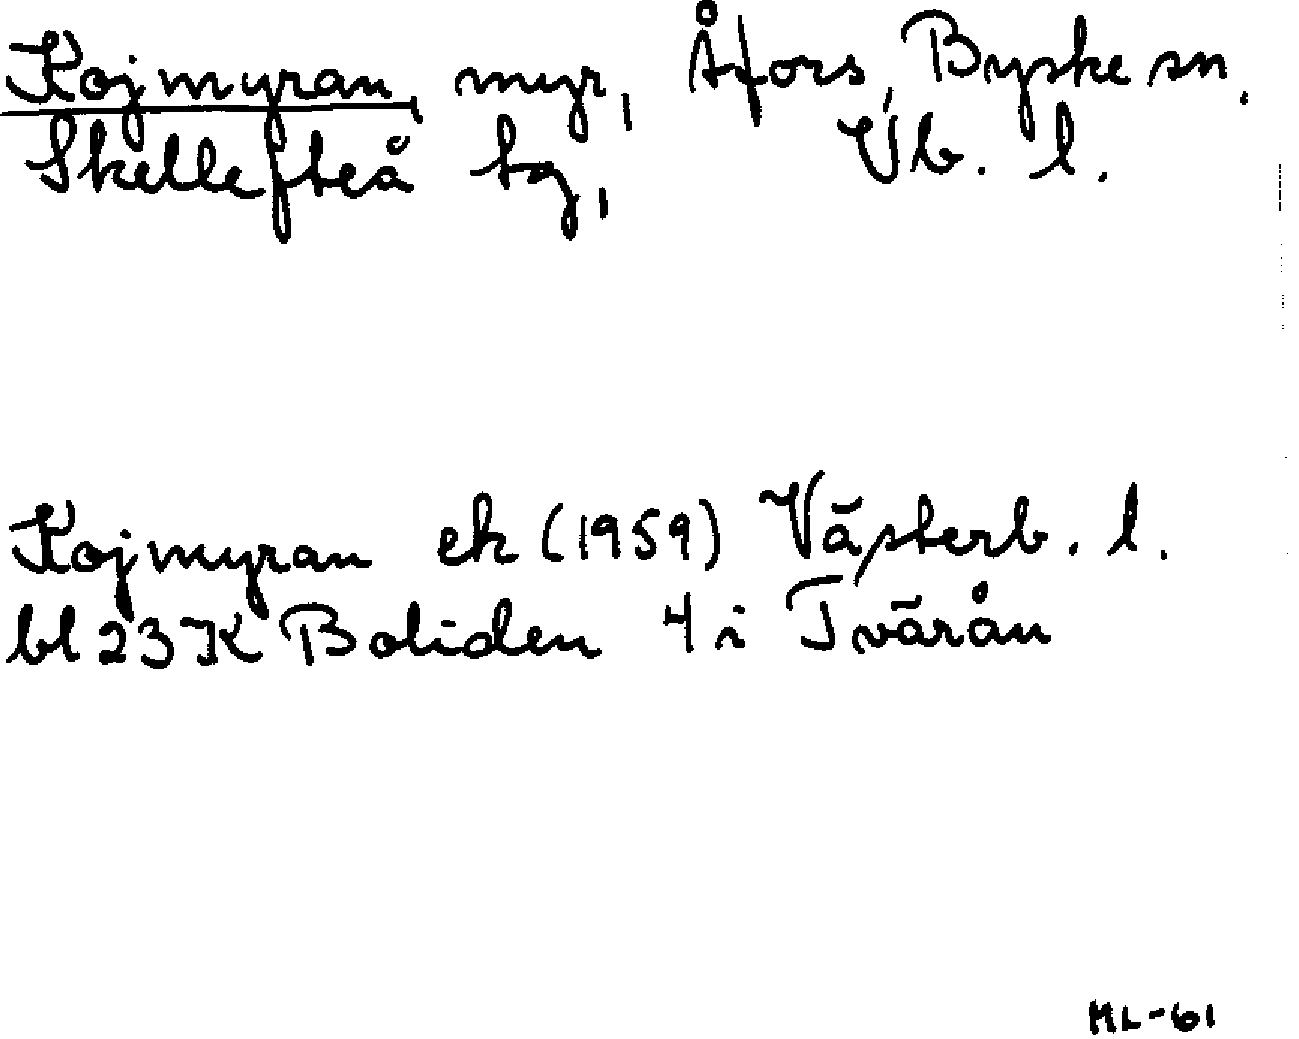 Kojmyran, myr, Åfors, Byske sn.
Skellefteå tg, Vb. l.
Kojmyran ek (1959) Västerb. l.
bl 23K Boliden 4 i Tvärån
ML-61